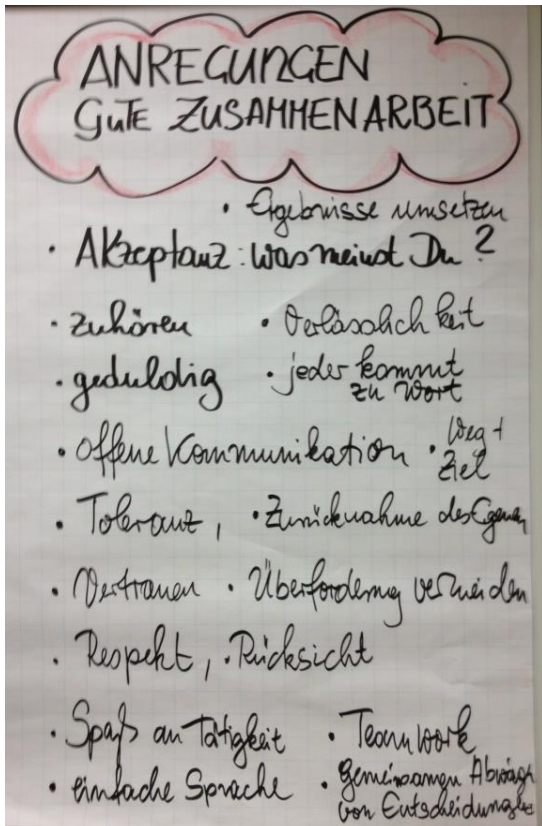 ANREGUNGEN
GUTE ZUSAMMENARBEIT
• Ergebnisse umsetzen
• Akzeptanz: was meinst Du?
• zuhören • Verlässlichkeit
• geduldig • jeder kommt
zu Wort
• offene Kommunikation • Weg +
Ziel
• Toleranz, • Zurücknahme des Eigenen
• Vertrauen • Überforderung vermeiden
• Respekt, • Rücksicht
• Spaß an Tätigkeit • Teamwork
• einfache Sprache • gemeinsamen
von Entscheidungen